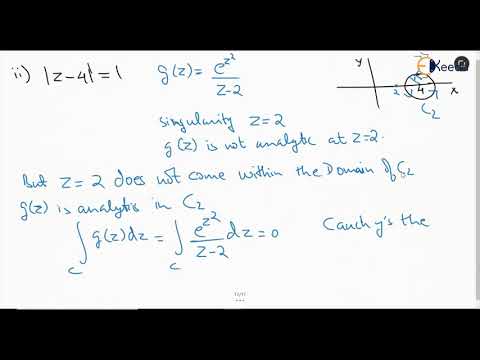 ii) |z-4| = 1
g(z) = e^{z^2}/(z-2)
singularity z=2
g(z) is not analytic at z=2.
But z=2 does not come within the Domain of C₂
g(z) is analytis in C₂
∫_C g(z)dz = ∫_C e^{z^2}/(z-2) dz = 0
Cauchy's the
y
x
2
4
C₂